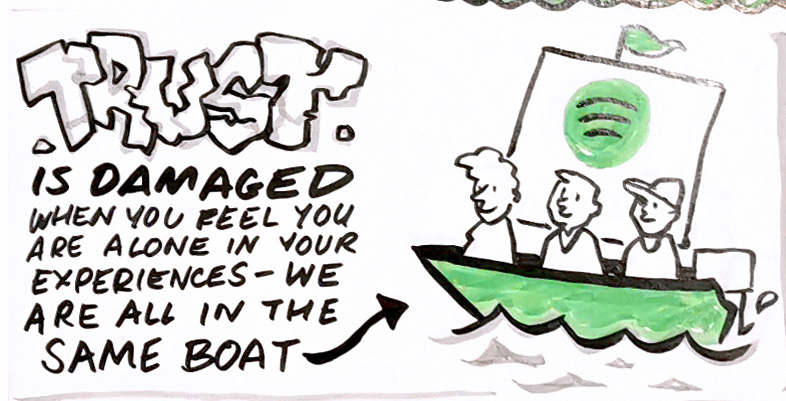 TRUST
IS DAMAGED
WHEN YOU FEEL YOU
ARE ALONE IN YOUR
EXPERIENCES - WE
ARE ALL IN THE
SAME BOAT